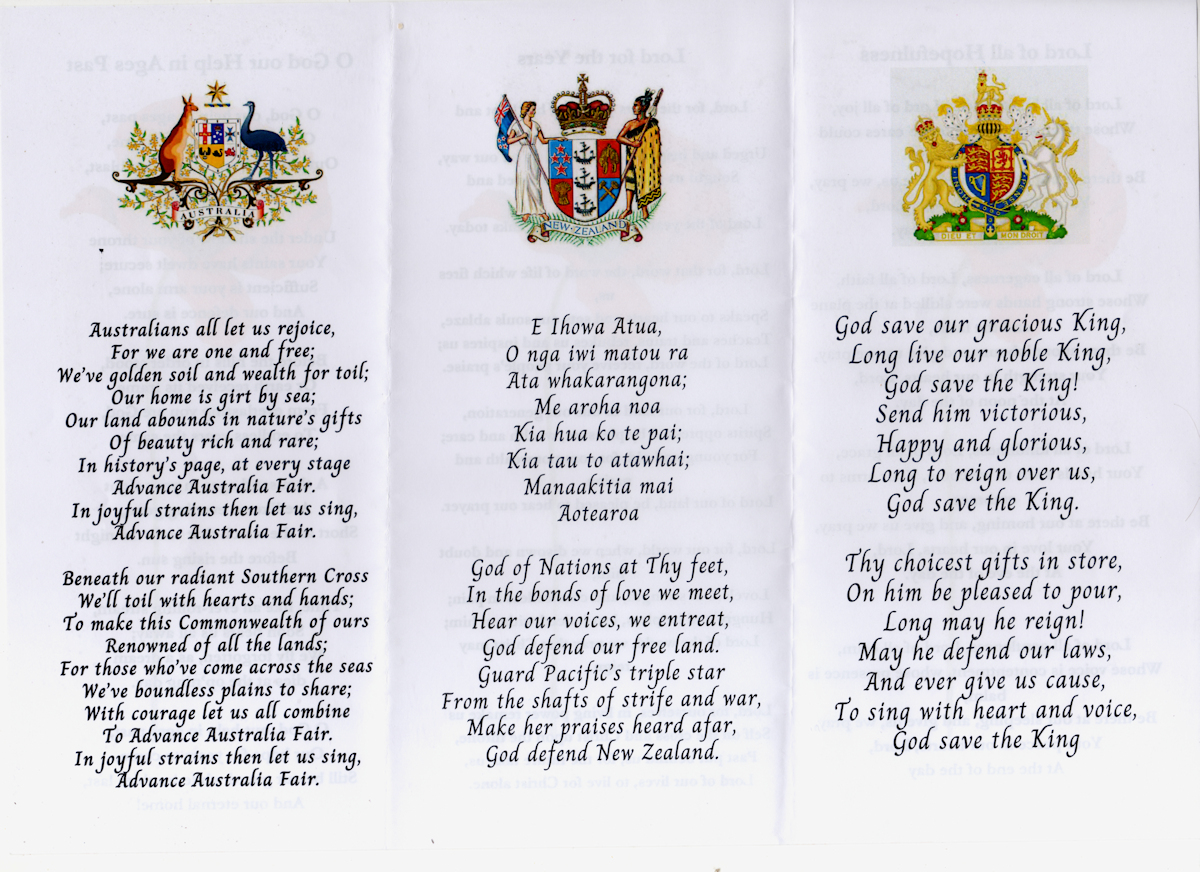 AUSTRALIA
Australians all let us rejoice,
For we are one and free;
We've golden soil and wealth for toil;
Our home is girt by sea;
Our land abounds in nature's gifts
Of beauty rich and rare;
In history's page, at every stage
Advance Australia Fair.
In joyful strains then let us sing,
Advance Australia Fair.
Beneath our radiant Southern Cross
We'll toil with hearts and hands;
To make this Commonwealth of ours
Renowned of all the lands;
For those who've come across the seas
We've boundless plains to share;
With courage let us all combine
To Advance Australia Fair.
In joyful strains then let us sing,
Advance Australia Fair.
NEW·ZEALAND
E Ihowa Atua,
O nga iwi matou ra
Ata whakarangona;
Me aroha noa
Kia hua ko te pai;
Kia tau to atawhai;
Manaakitia mai
Aotearoa
God of Nations at Thy feet,
In the bonds of love we meet,
Hear our voices, we entreat,
God defend our free land.
Guard Pacific's triple star
From the shafts of strife and war,
Make her praises heard afar,
God defend New Zealand.
DIEU ET MON DROIT
God save our gracious King,
Long live our noble King,
God save the King!
Send him victorious,
Happy and glorious,
Long to reign over us,
God save the King.
Thy choicest gifts in store,
On him be pleased to pour,
Long may he reign!
May he defend our laws,
And ever give us cause,
To sing with heart and voice,
God save the King